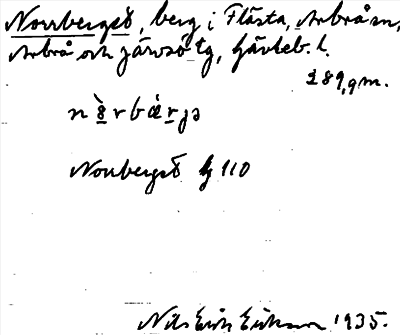 Norrberget, berg i Flästa, Arbrå sn,
Arbrå och Järvsö tg, Gävleb. l.
289,9 m.
Norrberget b 110
Nils Erik Eriksson 1935.